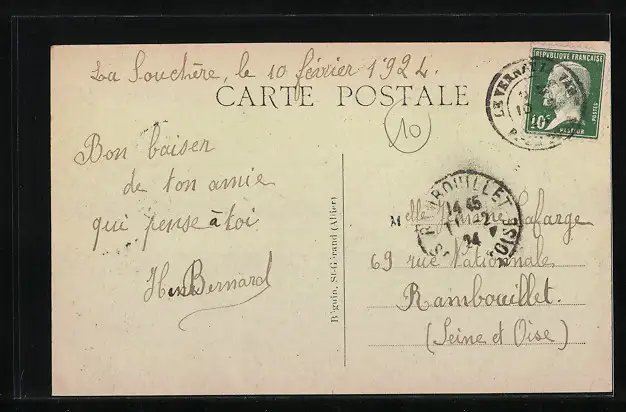 La Souchère, le 10 février 1924.
CARTE POSTALE
RÉPUBLIQUE FRANÇAISE
10c
POSTES
PASTEUR
LE VERNET
10
Bon baiser
de ton amie
qui pense à toi
Bernard
Bégouin, St-Gérand (Allier)
RAMBOUILLET
14 45
11 - 2
24
S. OISE
Melle Lafarge
69 rue Nationale
Rambouillet.
(Seine et Oise)